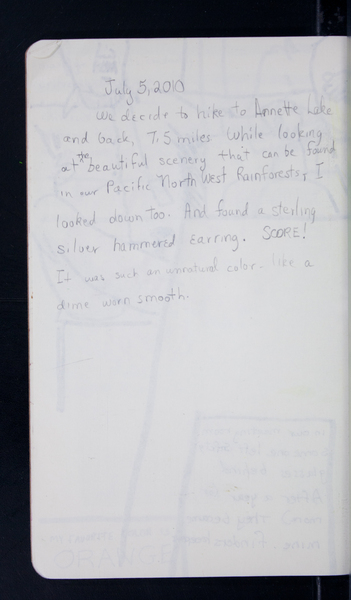 July 5, 2010
We decide to hike to Annette Lake
and back, 7.5 miles while looking
at the beautiful scenery that can be found
in our Pacific North West Rainforests, I
looked down too. And found a sterling
silver hammered earring. SCORE!
It was such an unnatural color. like a
dime worn smooth.